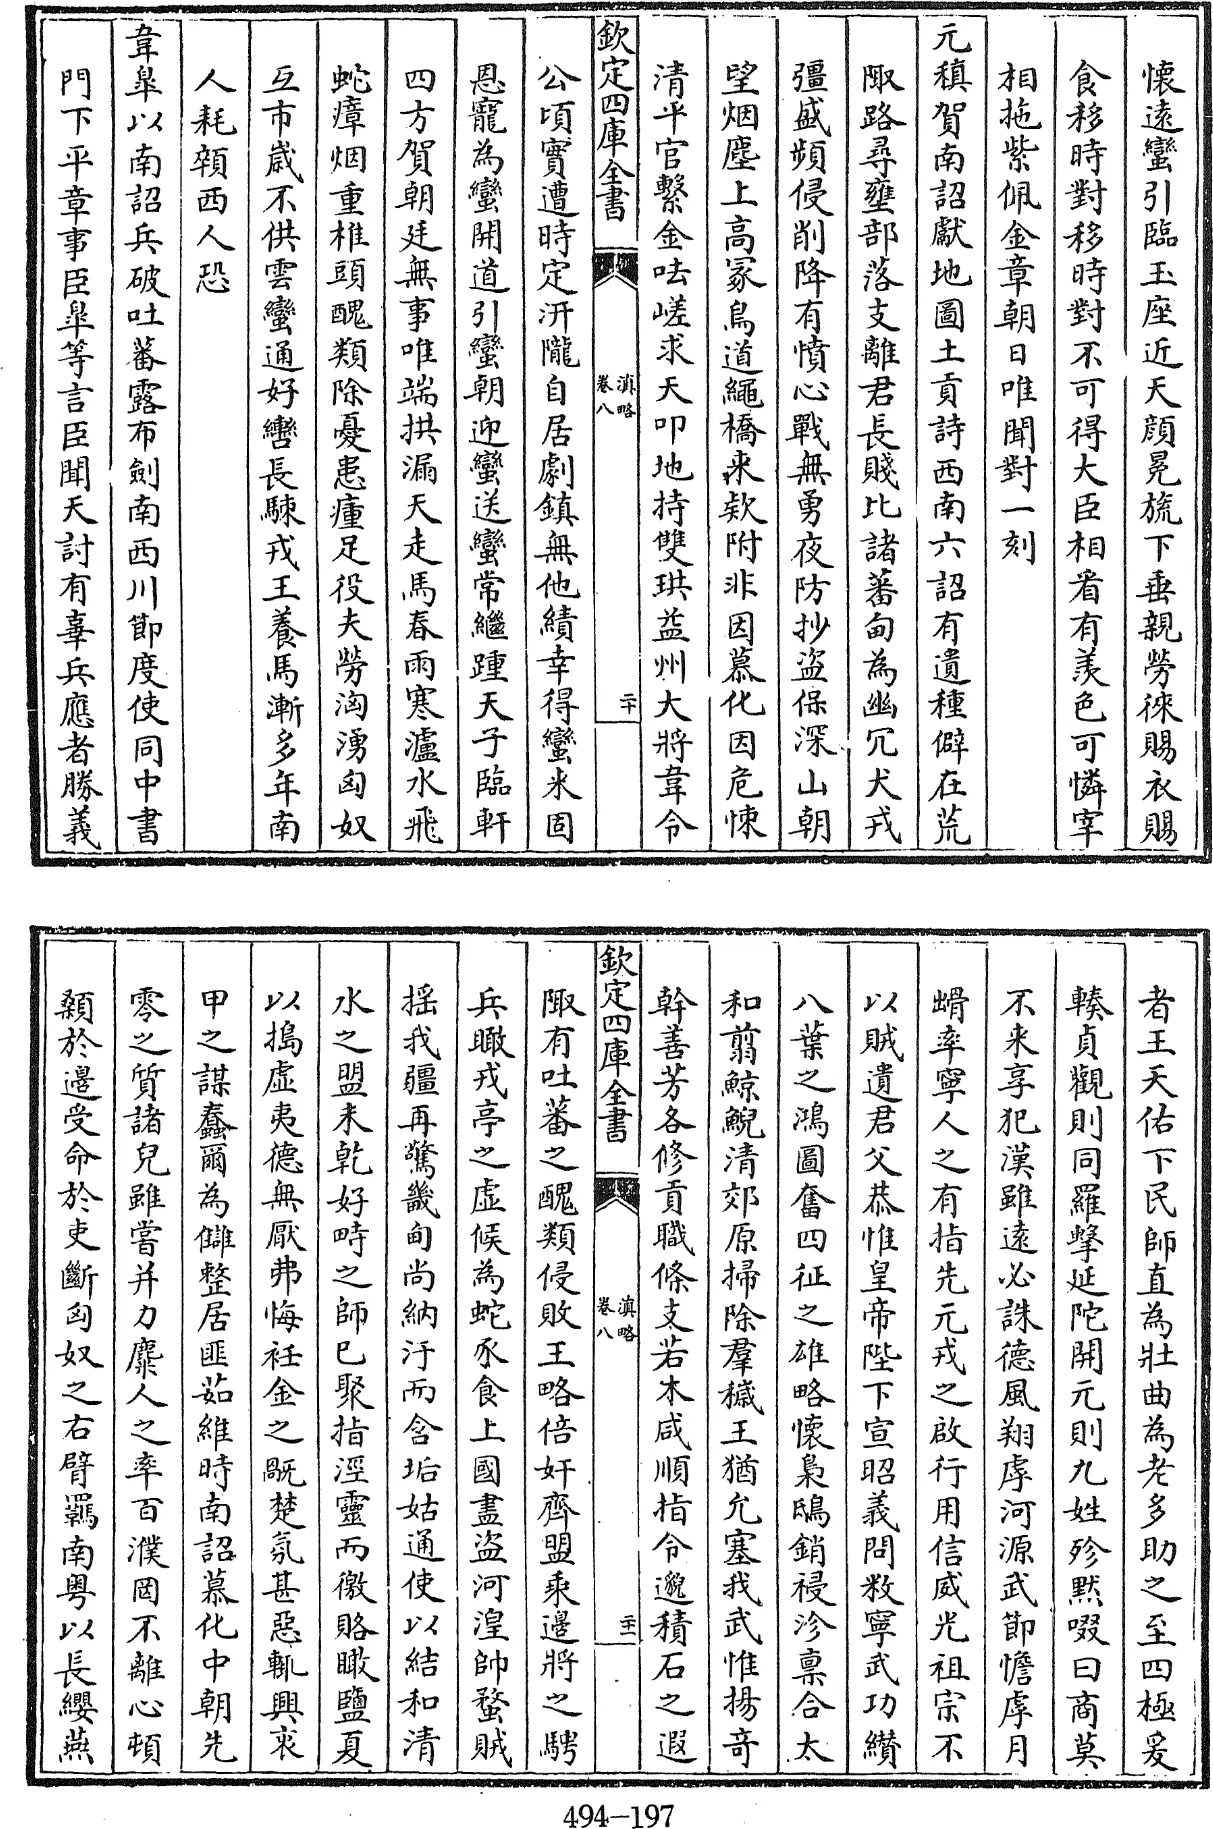 懷遠蠻引臨玉座近天顔冕旒下垂親勞徠賜衣賜
食移時對移時對不可得大臣相看有羡色可憐宰
相拖紫佩金章朝日唯聞對一刻
元稹賀南詔獻地圖土貢詩西南六詔有遺種僻在荒
陬路尋壅部落支離君長賤比諸蕃甸為幽冗犬戎
彊盛頻侵削降有憤心戰無勇夜防抄盗保深山朝
望烟塵上高冢鳥道繩橋来欵附非因慕化因危悚
清平官繫金呿嵯求天叩地持雙珙益州大將韋令
欽定四庫全書
滇略
卷八
二十
公頃實遭時定汧隴自居劇鎮無他績幸得蠻来固
恩寵為蠻開道引蠻朝迎蠻送蠻常繼踵天子臨軒
四方賀朝廷無事唯端拱漏天走馬春雨寒瀘水飛
蛇瘴烟重椎頭醜類除憂患瘇足役夫勞洶湧匈奴
互市歳不供雲蠻通好轡長駷戎王養馬漸多年南
人耗顇西人恐
韋臯以南詔兵破吐蕃露布劍南西川節度使同中書
門下平章事臣臯等言臣聞天討有辠兵應者勝義
者王天佑下民師直為壯曲為老多助之至四極爰
輳貞觀則同羅擊延陀開元則九姓殄黙啜曰商莫
不来享犯漢雖遠必誅德風翔虖河源武節憺虖月
蝟率寧人之有指先元戎之啟行用信威光祖宗不
以賊遺君父恭惟皇帝陛下宣昭義問敉寧武功纘
八葉之鴻圖奮四征之雄略懷梟鴟銷祲沴禀合太
和翦鯨鯢清郊原掃除羣穢王猶允塞我武惟揚奇
幹善芳各修貢職條支若木咸順指令邈積石之遐
欽定四庫全書
滇略
卷八
二十一
陬有吐蕃之醜類侵敗王略倍奸齊盟乘邊將之騁
兵瞰戎亭之虚候為蛇豕食上國盡盗河湟帥蝥賊
揺我疆再驚畿甸尚納汙而含垢姑通使以結和清
水之盟未乾好畤之師已聚指涇靈而徼賂瞰鹽夏
以搗虚夷德無厭弗悔衽金之翫楚氛甚惡輒興衷
甲之謀蠢爾為讎整居匪茹維時南詔慕化中朝先
零之質諸兒雖嘗并力麇人之率百濮罔不離心頓
顙於邊受命於吏斷匈奴之右臂羈南粤以長纓燕
494-197